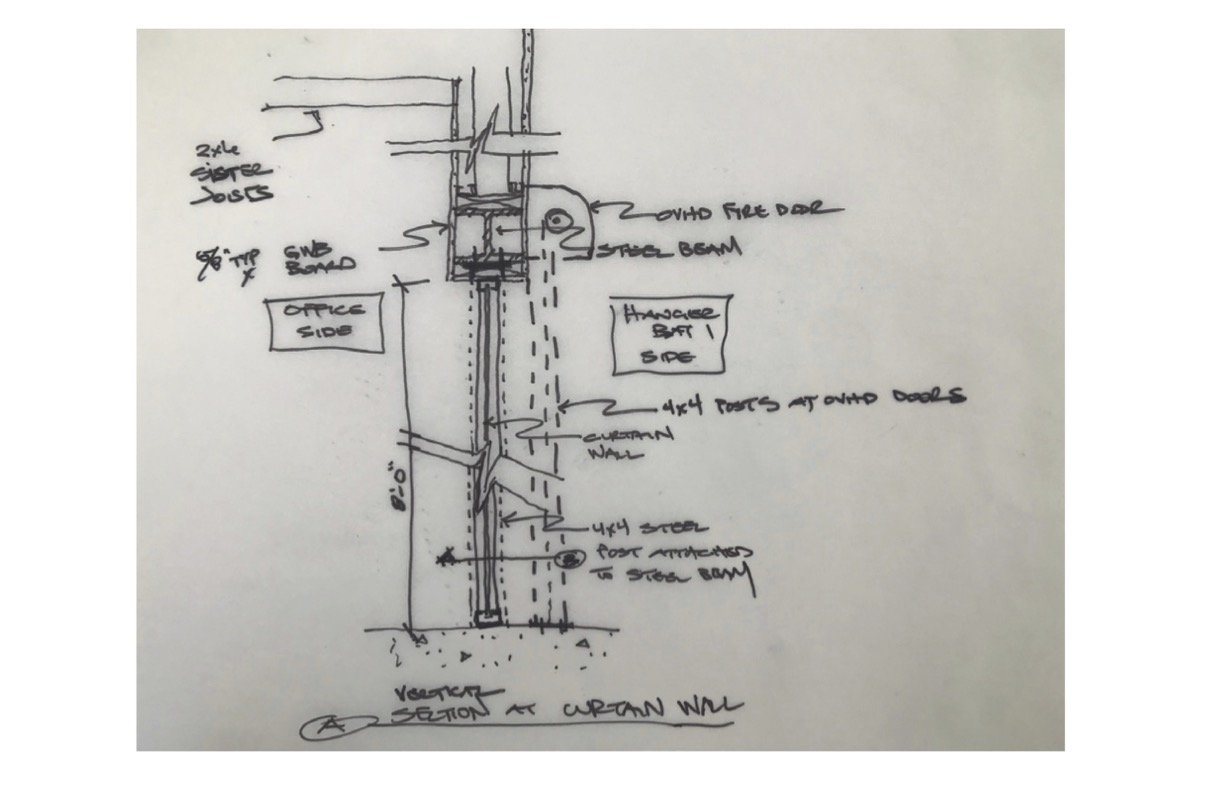 2x6
SISTER
JOISTS
OVHD FIRE DOOR
STEEL BEAM
5/8" TYP X
GWB
BOARD
OFFICE
SIDE
HANGER
BAY 1
SIDE
4x4 POSTS AT OVHD DOORS
CURTAIN
WALL
8'-0"
4x4 STEEL
POST ATTACHED
TO STEEL BEAM
A
B
VERTICAL
SECTION AT CURTAIN WALL
A